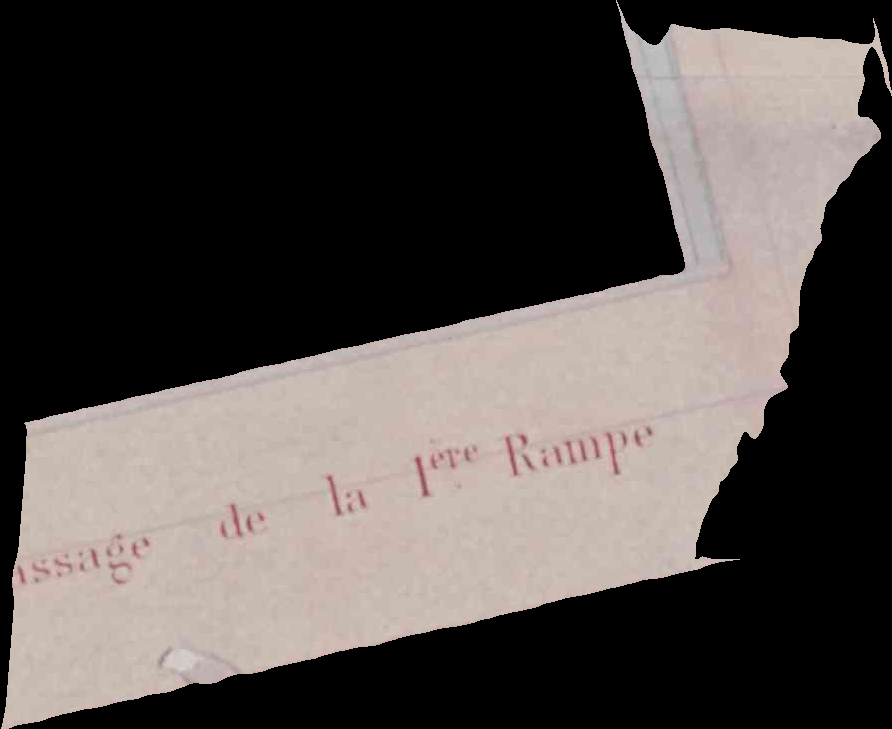 assage de la 1ère Rampe